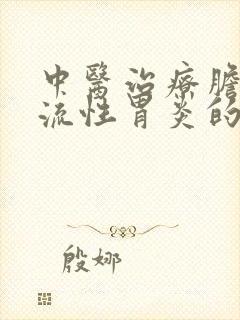 中醫治療膽
流性胃炎的
殷娜